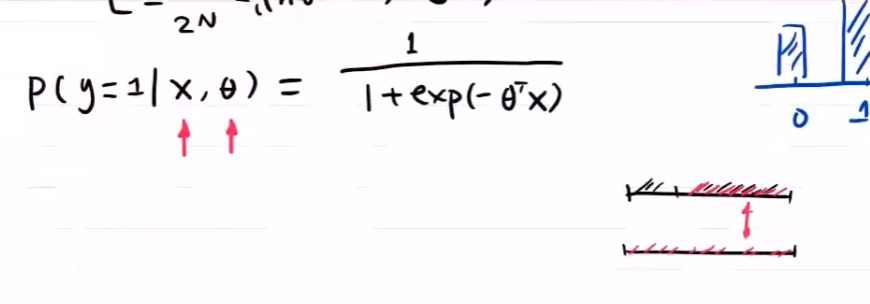 2N
P(y=1|x,θ) = 1 / 1+exp(-θᵀx)
0 1